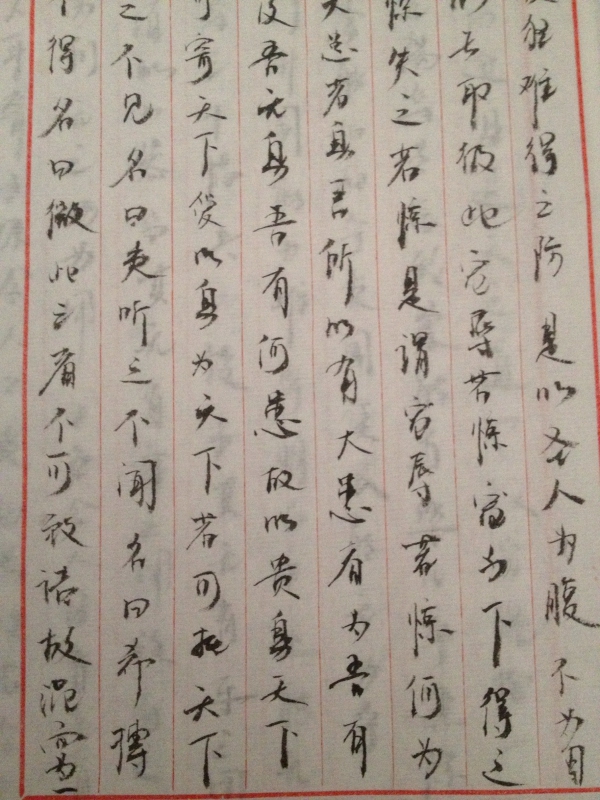 狂难得之防是以圣人为腹不为目
去取彼此宠辱若惊宠为下得之
惊失之若惊是谓宠辱若惊何为
大患者身吾所以有大患者为吾有
及吾无身吾有何患故以贵身天下
可寄天下爱以身为天下若可托天下
之不见名曰夷听之不闻名曰希搏
不得名曰微此三者不可致诘故混而为一